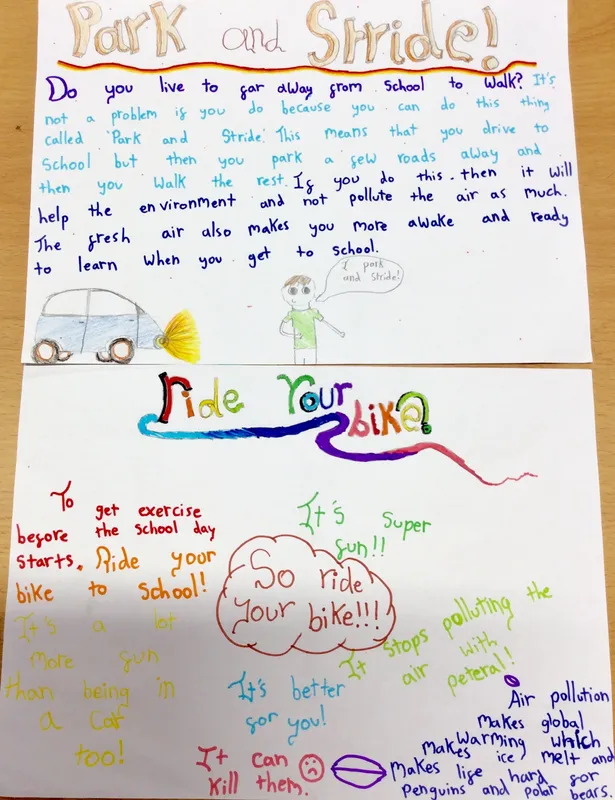 Park and Stride!
Do you live to far away from School to Walk? It's
not a problem if you do because you can do this thing
called 'Park and Stride'. This means that you drive to
School but then you park a few roads away and
then you walk the rest. If you do this. then it will
help the environment and not pollute the air as much.
The fresh air also makes you more awake and ready
to learn when you get to school.
I park
and Stride!
ride Your
bike!
To get exercise
before the school day
starts. Ride your
bike to School!
It's a lot
more fun
than being in
a car
too!
It's Super
fun!!
So ride
your bike!!!
It stops polluting the
air with
peteral!
It's better
for you!
Air pollution
makes global
warming which
makes ice melt and
makes life hard for
Penguins and polar bears.
It can
kill them.